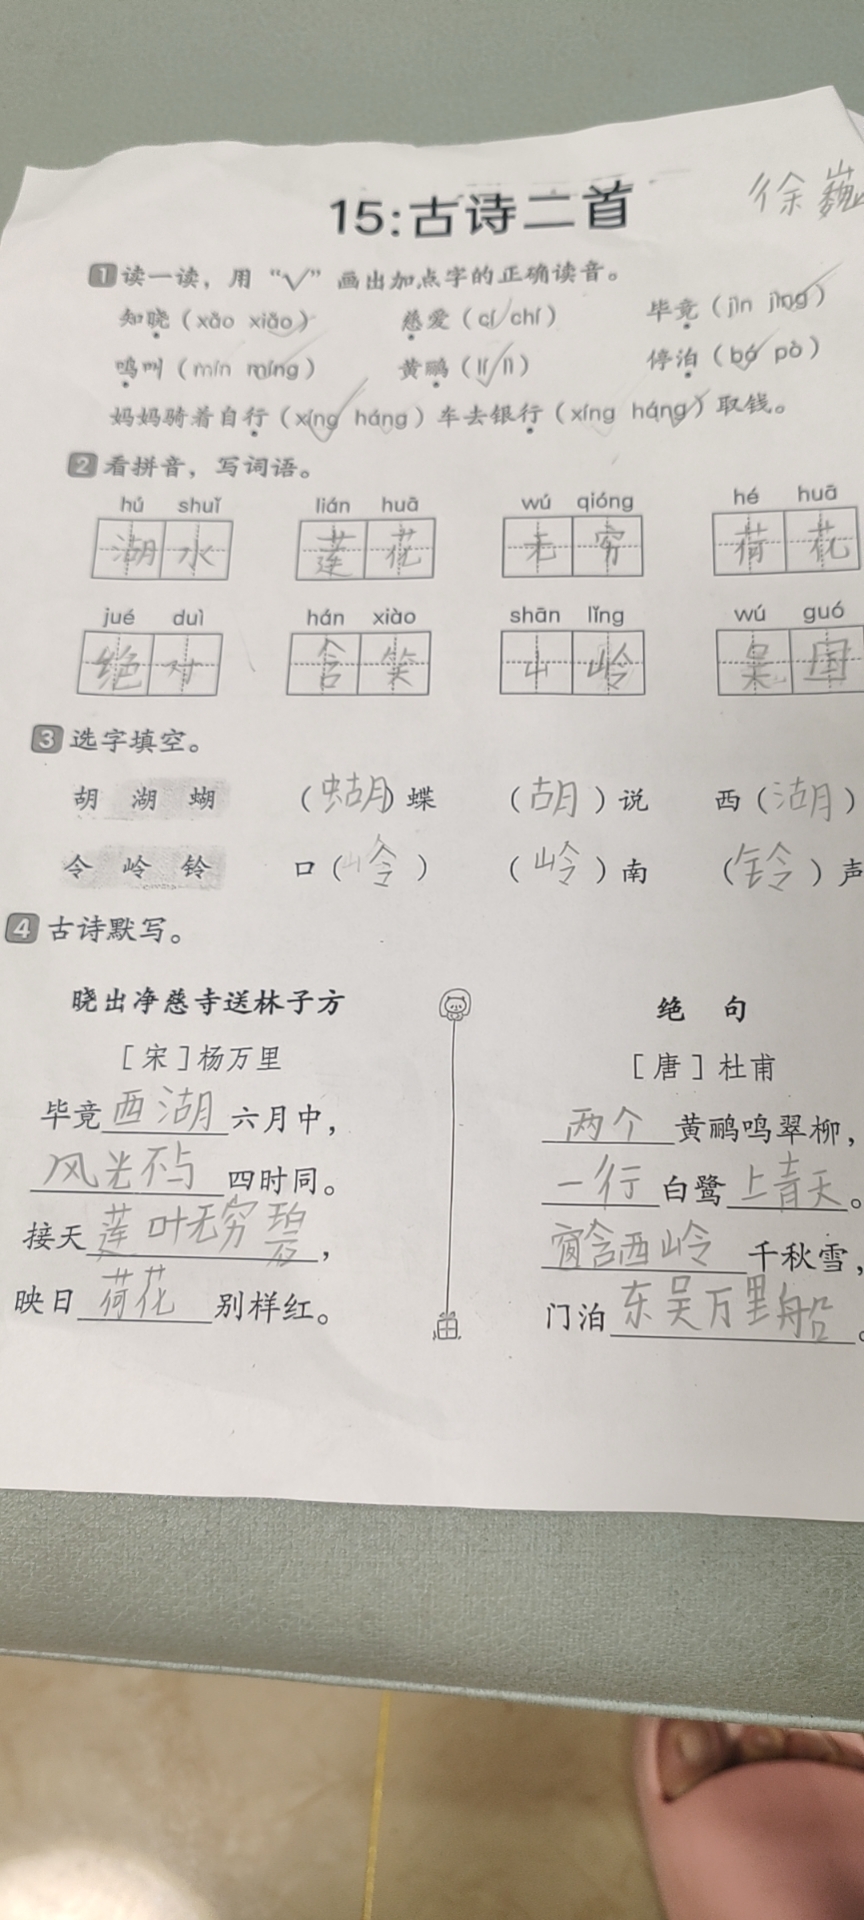 15:古诗二首 徐巍
1 读一读，用“√”画出加点字的正确读音。
知晓（xǎo xiǎo） 慈爱（cí chí） 毕竟（jìn jìng）
鸣叫（mín míng） 黄鹂（lí lì） 停泊（bó pò）
妈妈骑着自行（xíng háng）车去银行（xíng háng）取钱。
2 看拼音，写词语。
hú shuǐ lián huā wú qióng hé huā
湖水 莲花 无穷 荷花
jué duì hán xiào shān lǐng wú guó
绝对 含笑 山岭 吴国
3 选字填空。
胡 湖 蝴 （蝴）蝶 （胡）说 西（湖）
令 岭 铃 口（令） （岭）南 （铃）声
4 古诗默写。
晓出净慈寺送林子方
［宋］杨万里
毕竟西湖六月中，
风光不与四时同。
接天莲叶无穷碧，
映日荷花别样红。
绝 句
［唐］杜甫
两个黄鹂鸣翠柳，
一行白鹭上青天。
窗含西岭千秋雪，
门泊东吴万里船。